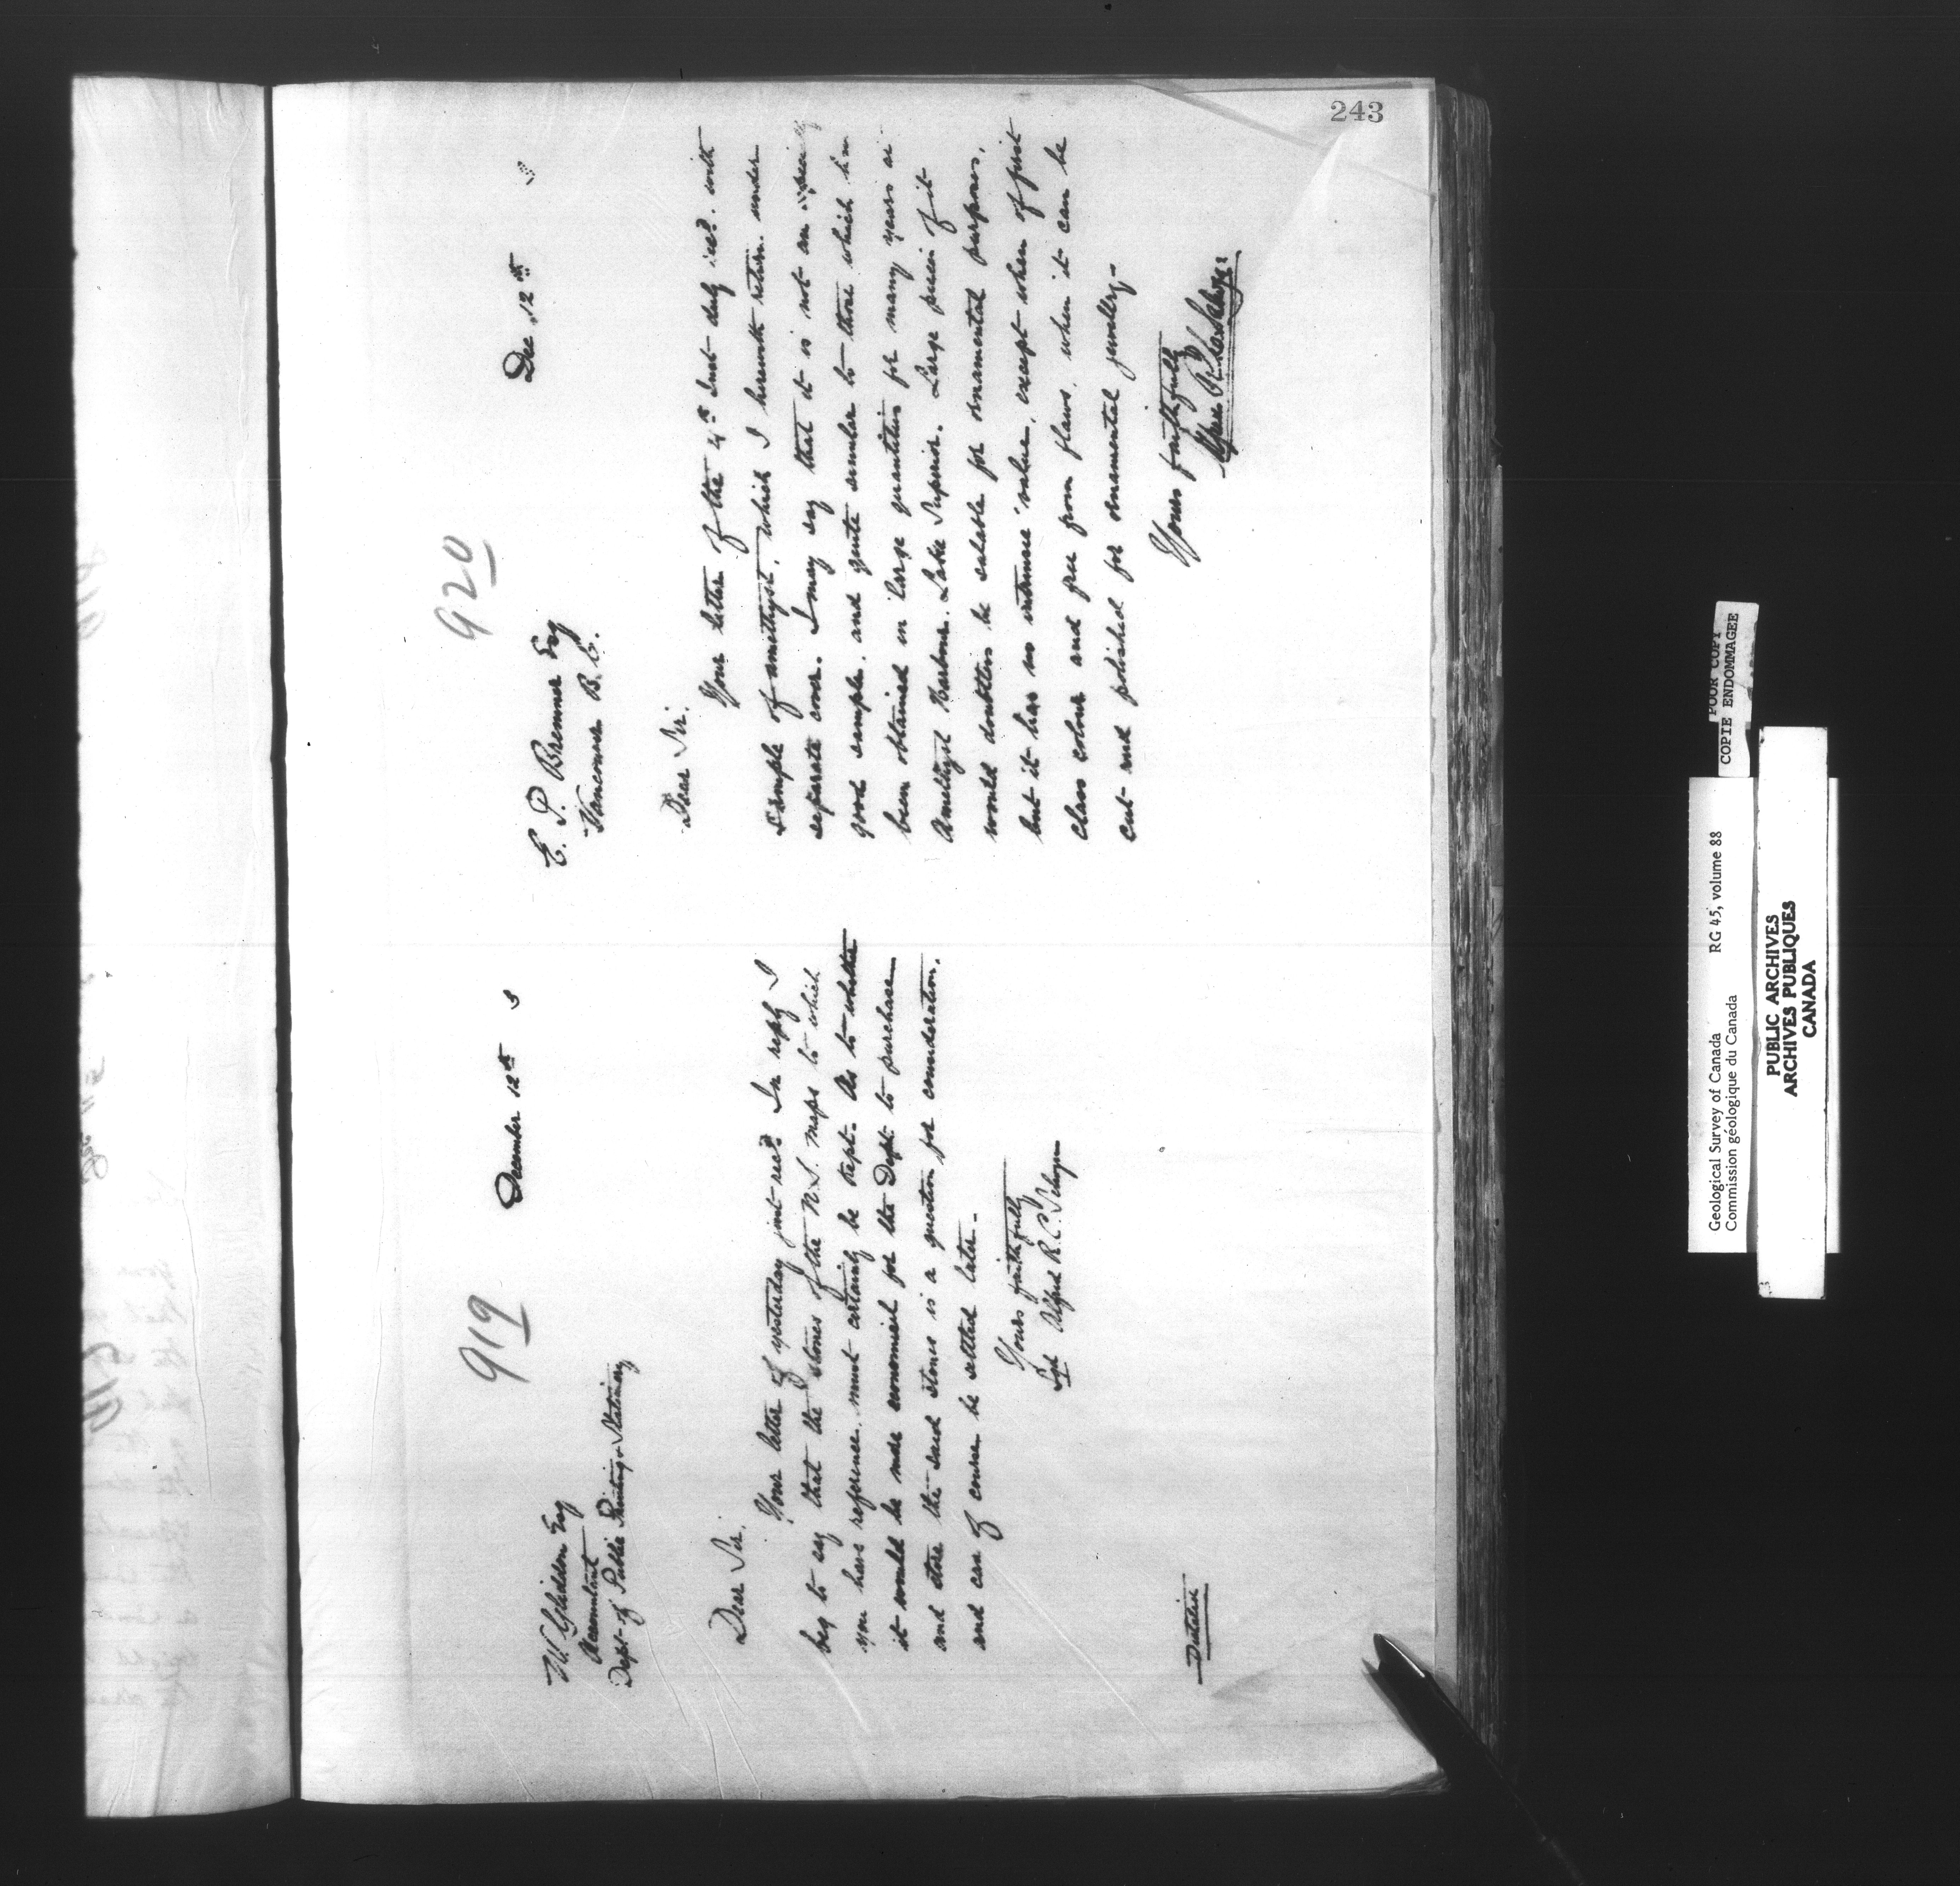 243
919
December 12th 3
W Gliddon Esq
Accountant
Dept. of Public Printing & Stationery
Dear Sir.
Your letter of yesterday just recd. In reply I
beg to say that the stones of the N.S. maps to which
you have reference. must certainly be kept. As to whether
it would be more economical for the Dept to purchase
and store the said stones is a question for consideration,
and can of course be settled later.
Yours faithfully
Sgd Alfred R.C. Selwyn
Dictated
920
Dec. 12th 3
E. P. Bremner Esq
Vancouver B.C.
Dear Sir.
Your letter of the 4th Inst duly recd. with
sample of amethyst, which I herewith return. under
separate cover. I may say that it is not an especially
good sample. and quite similar to those which have
been obtained in large quantities for many years at
Amethyst Harbour. Lake Superior. Large pieces of it
would doubtless be salable for ornamental purposes,
but it has no intrinsic value, except when of first
class colour and free from flaws, when it can be
cut and polished for ornamental jewellery.
Yours faithfully
Alfred R. C. Selwyn
POOR COPY
COPIE ENDOMMAGEE
Geological Survey of Canada RG 45, volume 88
Commission géologique du Canada
PUBLIC ARCHIVES
ARCHIVES PUBLIQUES
CANADA